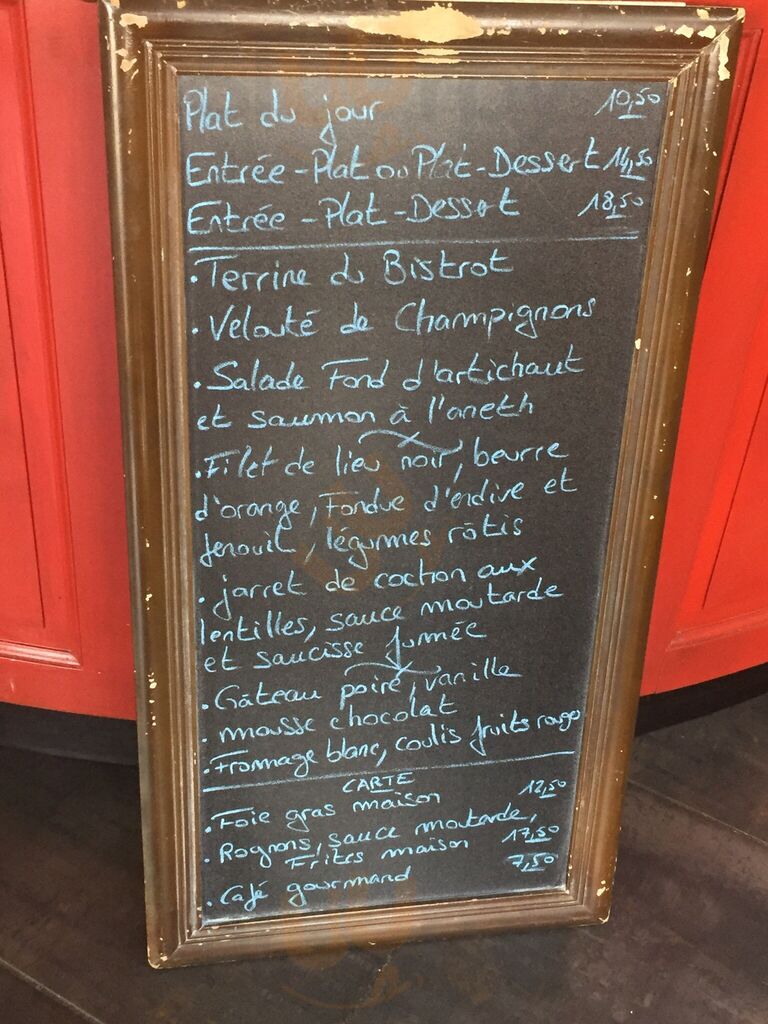 Plat du jour 10,50
Entrée - Plat ou Plat - Dessert 14,50
Entrée - Plat - Dessert 18,50
· Terrine du Bistrot
· Velouté de Champignons
· Salade Fond d'artichaut
et saumon à l'aneth
· Filet de lieu noir, beurre
d'orange, Fondue d'endive et
fenouil, légumes rôtis
· jarret de cochon aux
lentilles, sauce moutarde
et saucisse fumée
· Gâteau poire, vanille
· mousse chocolat
· Fromage blanc, coulis fruits rouge
CARTE
· Foie gras maison 12,50
· Rognons, sauce moutarde,
Frites maison 17,50
· Café gourmand 7,50